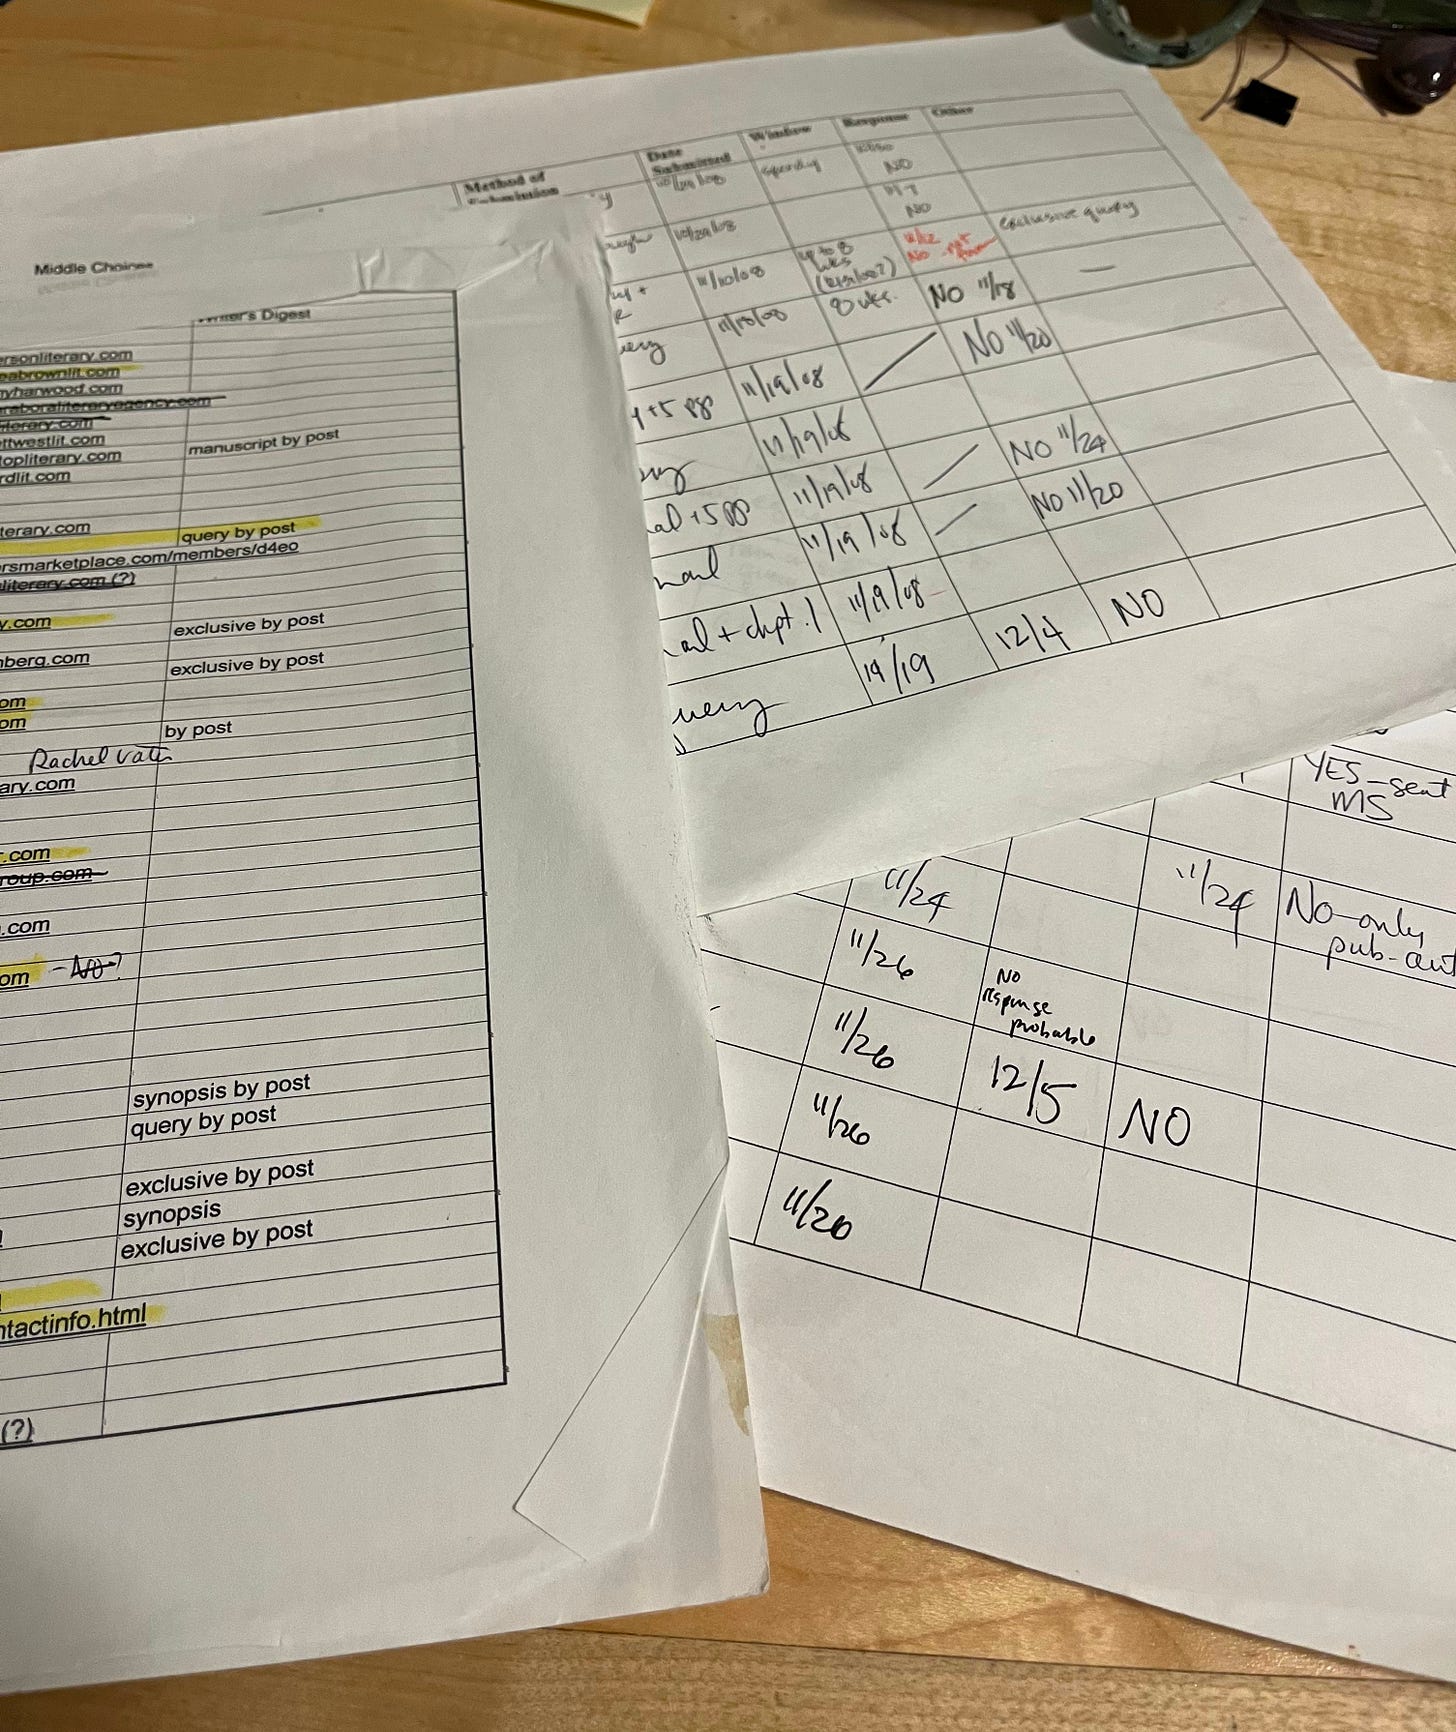 Middle Choices
Writer's Digest
ersonliterary.com
eabrownlit.com
yharwood.com
araboraliteraryagency.com
literary.com
ttwestlit.com
manuscript by post
topliterary.com
rdlit.com
terary.com
query by post
ersmarketplace.com/members/d4eo
literary.com (?)
y.com
exclusive by post
nberg.com
exclusive by post
om
om
by post
Rachel Vater
ary.com
r.com
roup.com
.com
om - No?
synopsis by post
query by post
exclusive by post
synopsis
exclusive by post
ntactinfo.html
(?)
Method of Submission
Date Submitted
Window
Response
Other
10/29/08
NO
10/29/08
NO
11/10/08
up to 8 wks
11/12
No - not
exclusive query
11/10/08
8 wks.
NO 11/18
—
y + 5 pp
11/19/08
NO 11/20
11/19/08
ail + 5 pp
11/19/08
NO 11/24
mail
11/19/08
NO 11/20
ail + chpt. 1
11/19/08
uery
11/19
12/4
NO
YES - sent MS
11/24
11/24
No - only
pub. aut
11/26
No response probable
11/26
12/5
NO
11/26
11/20